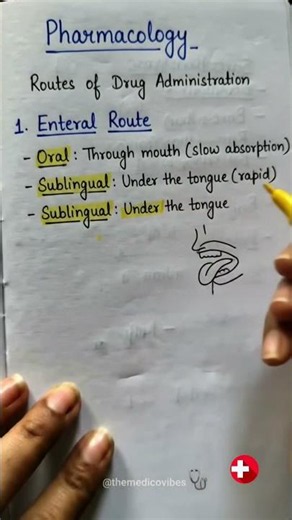 Pharmacology
Routes of Drug Administration
1. Enteral Route
- Oral: Through mouth (slow absorption)
- Sublingual: Under the tongue (rapid)
- Sublingual: Under the tongue
@themedicovibes